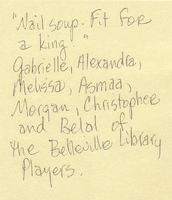 "Nail soup. Fit for
a king"
Gabrielle, Alexandra,
Melissa, Asmaa,
Morgan, Christopher
and Belal of
the Belleville Library
Players.